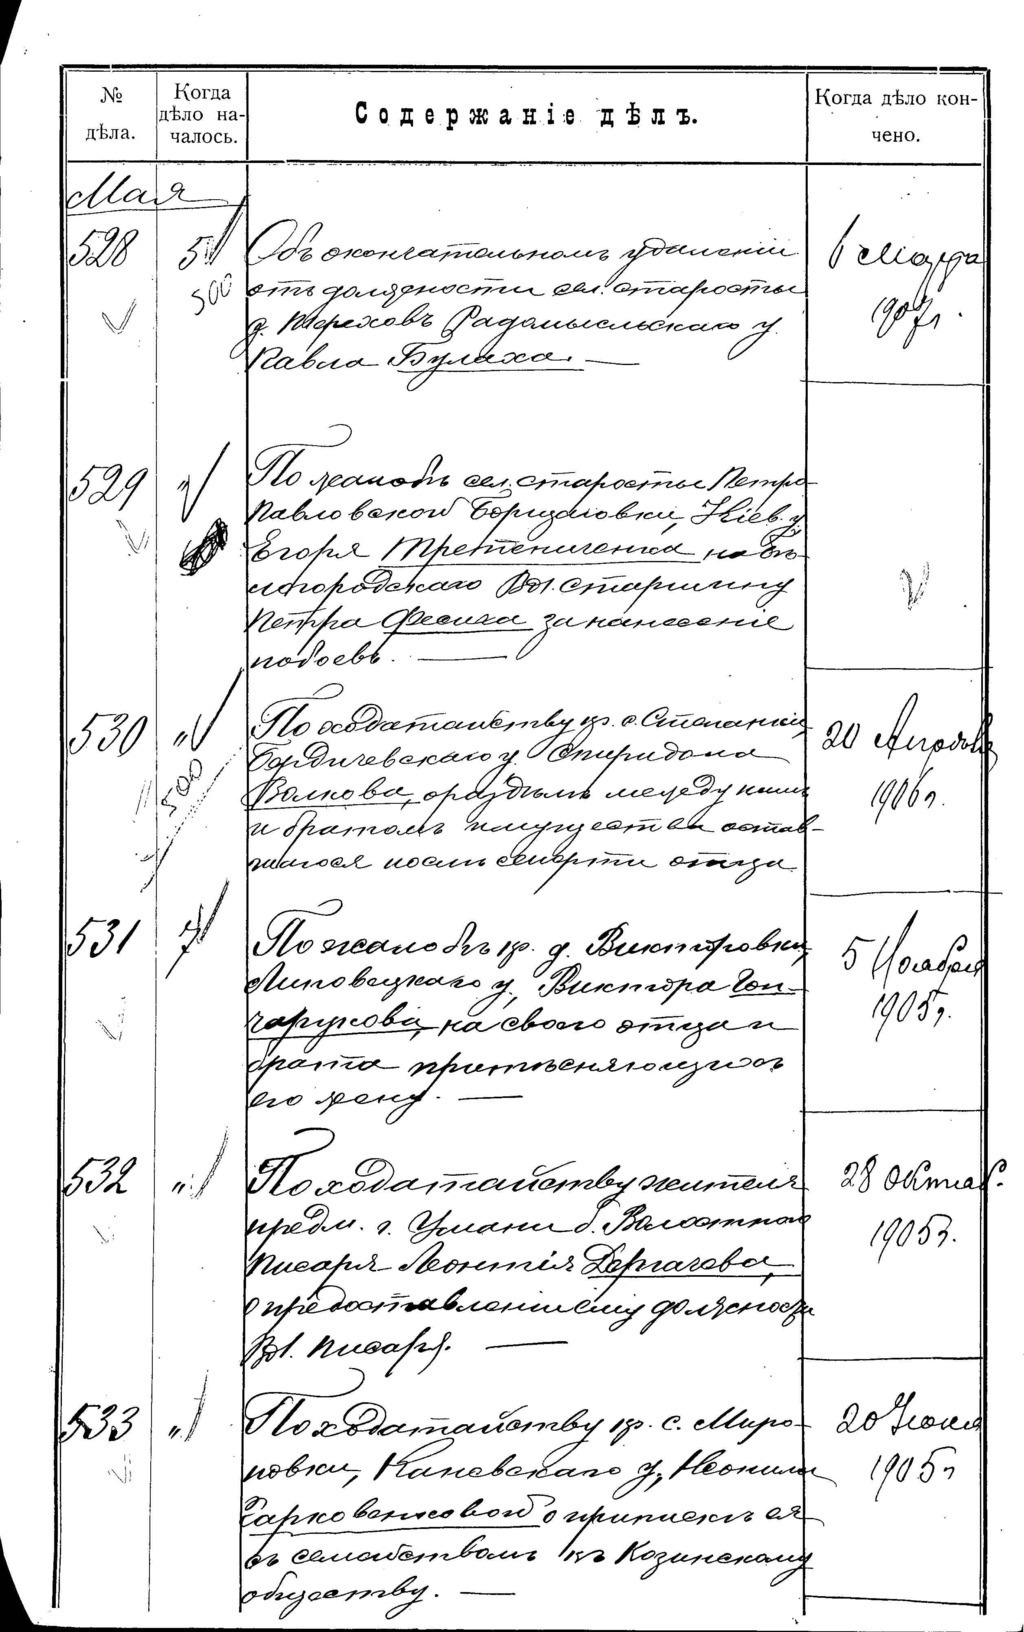 № дѣла.
Когда дѣло на-
чалось.
Содержаніе дѣлъ.
Когда дѣло кон-
чено.
Мая
528 5 Объ окончательномъ удаленіи 6 Марта
500 отъ должности сел. старосты 1907г.
д. Тереховъ Радомысльскаго у.
Павла Булаха. —
529 " По жалобѣ сел. старосты Петро-
Павловской Борщаговки, Кіев. у.
Егора Третениченка на Бѣ-
логородскаго Вол. Старшину
Петра Фесика за нанесеніе
побоевъ. —
530 " По ходатайству кр. с. 20
500 Бердичевскаго у. Спиридона 1906г.
Волкова, о раздѣлѣ между нимъ
и братомъ имущества остав-
шагося послѣ смерти отца
531 7 По жалобѣ кр. д. Викторовки, 5 Ноября
Липовецкаго у., Виктора Гон- 1905г.
чарукова, на своего отца и
брата притѣсняющихъ
его жену. —
532 " По ходатайству жителя 28 Октяб.
предм. г. Умани б. Волостного 1905г.
Писаря Леонтія Дергачева,
о предоставленіи ему должности
Вол. писаря. —
533 " По ходатайству кр. с. Миро- 20 Іюня
новки, Каневскаго у., Неонилы 1905г
Харковенковой о припискѣ ея
съ семействомъ къ Козинскому
обществу. —